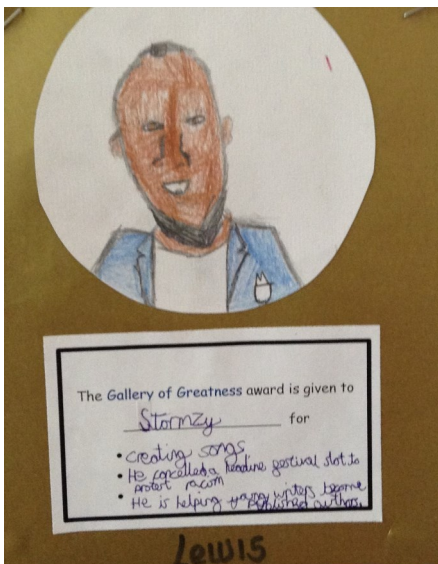 The Gallery of Greatness award is given to
Stormzy for
• creating songs
• He cancelled a headline festival slot to
protest racism
• He is helping young writers become
published authors.
Lewis